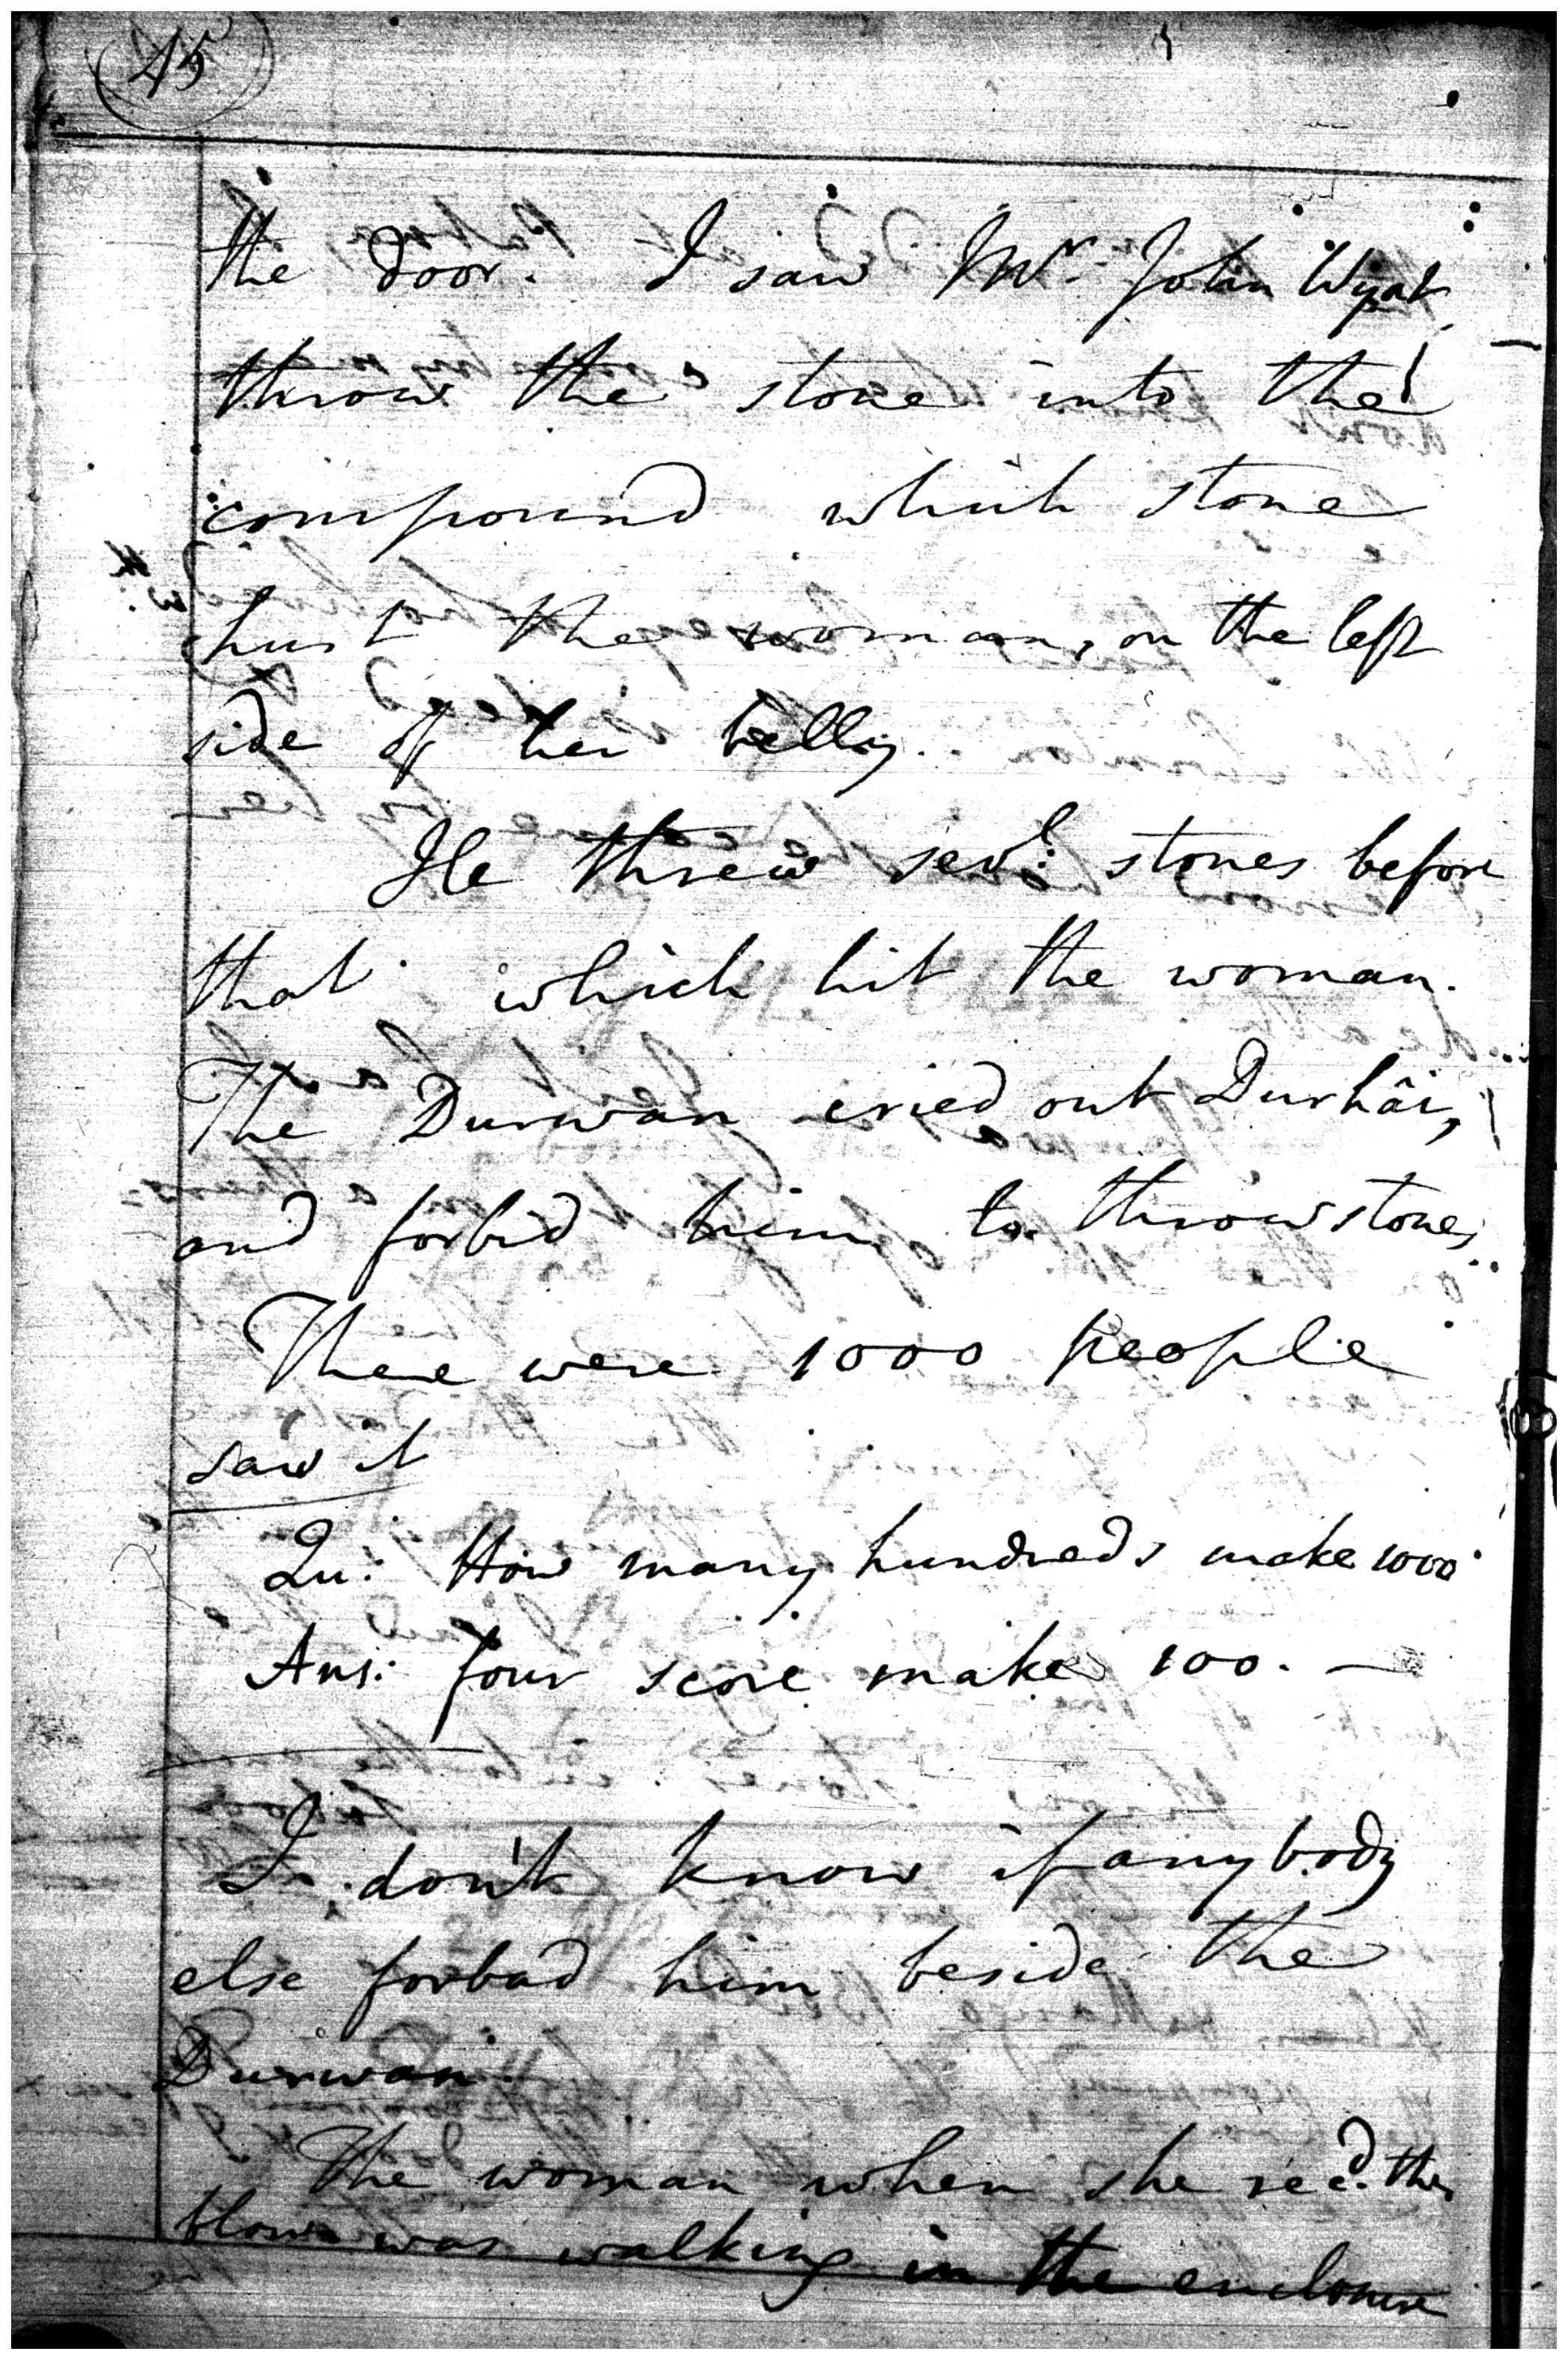 45
the door. I saw Mr. John Wyat
throw the stone into the
compound which stone
hurt the woman, on the left
side of her belly.
He threw sevl: stones before
that which hit the woman.
The Durwan cried out Durhâi,
and forbid him to throw stones
There were 1000 people
saw it
Qu: How many hundreds make 1000
Ans: four score make 100. —
I don't know if anybody
else forbad him beside the
Durwan.
The woman when she recd. the
blow was walking in the enclosure